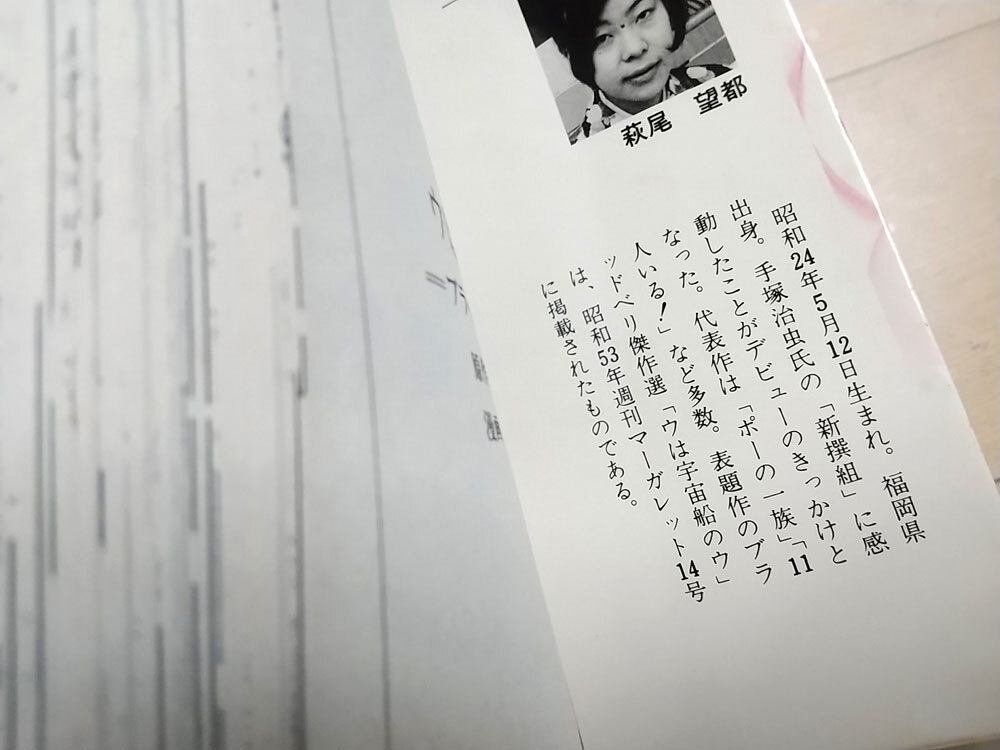 萩尾 望都
昭和24年5月12日生まれ。福岡県
出身。手塚治虫氏の「新撰組」に感
動したことがデビューのきっかけと
なった。代表作は「ポーの一族」「11
人いる！」など多数。表題作のブラ
ッドベリ傑作選「ウは宇宙船のウ」
は、昭和53年週刊マーガレット14号
に掲載されたものである。